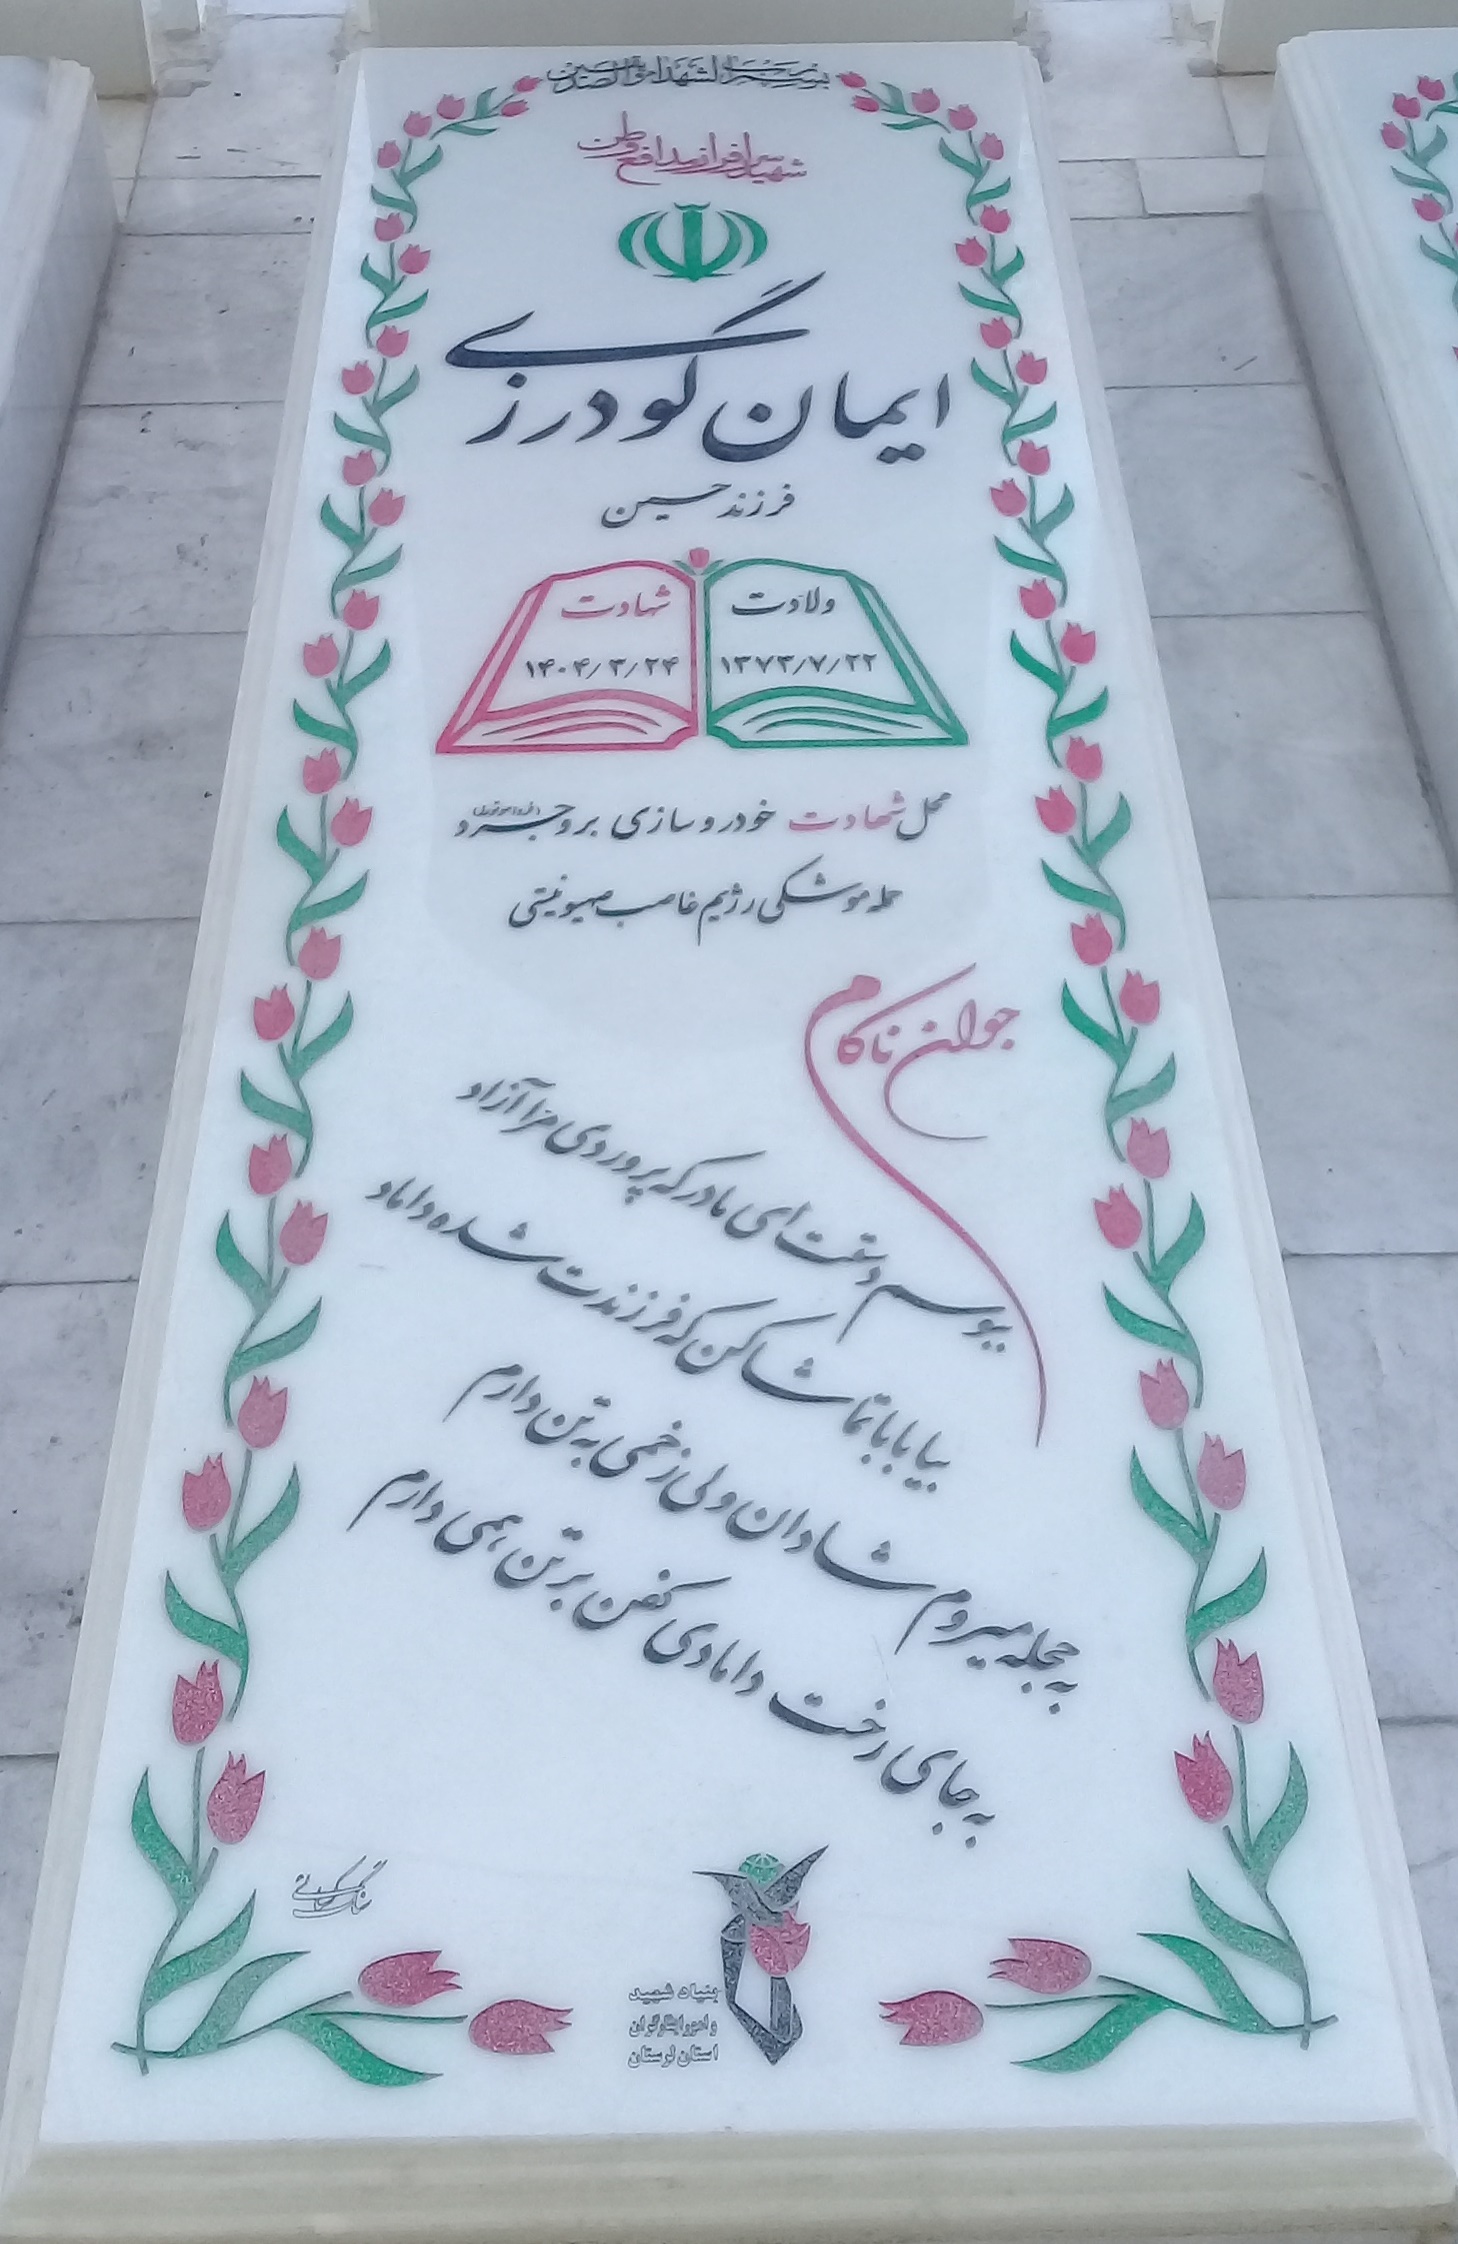 بسم رب الشهداء والصدیقین
شهید سرافراز مدافع وطن
ایمان گودرزی
فرزند حسین
ولادت
۱۳۷۳/۷/۲۲
شهادت
۱۴۰۴/۳/۲۴
محل شهادت خودروسازی بروجرد
حمله موشکی رژیم غاصب صهیونیستی
جوان ناکام
ببوسم دستت ای مادر که پروردی مرا آزاد
بیا بابا تماشا کن که فرزندت شده داماد
به حجله میروم شادان ولی زخمی به تن دارم
به جای رخت دامادی کفن بر تن همی دارم
بنیاد شهید
و امور ایثارگران
استان لرستان